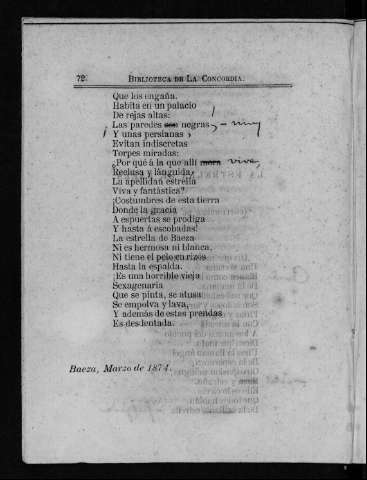 72. BIBLIOTECA DE LA CONCORDIA.
Que los engaña.
Habita en un palacio
De rejas altas:
Las paredes son negras, - muy
Y unas persianas
Evitan indiscretas
Torpes miradas:
¿Por qué á la que allí mora viva,
Reclusa y lánguida,
La apellidan estrella
Viva y fantástica?
¡Costumbres de esta tierra
Donde la gracia
A espuertas se prodiga
Y hasta á escobadas!
La estrella de Baeza
Ni es hermosa ni blanca,
Ni tiene el pelo en rizos
Hasta la espalda.
¡Es una horrible vieja
Sexagenaria
Que se pinta, se atusa
Se empolva y lava,
Y además de estas prendas
Es desdentada.
Baeza, Marzo de 1874.